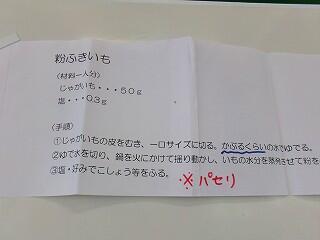 粉ふきいも
〈材料一人分〉
じゃがいも・・・50g
塩・・・0.3g
〈手順〉
①じゃがいもの皮をむき、一口サイズに切る。かぶるくらいの水でゆでる。
②ゆで水を切り、鍋を火にかけて揺り動かし、いもの水分を蒸発させて粉を
③塩・好みでこしょう等をふる。
※パセリ